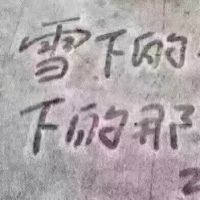 雪下的
下的那
2